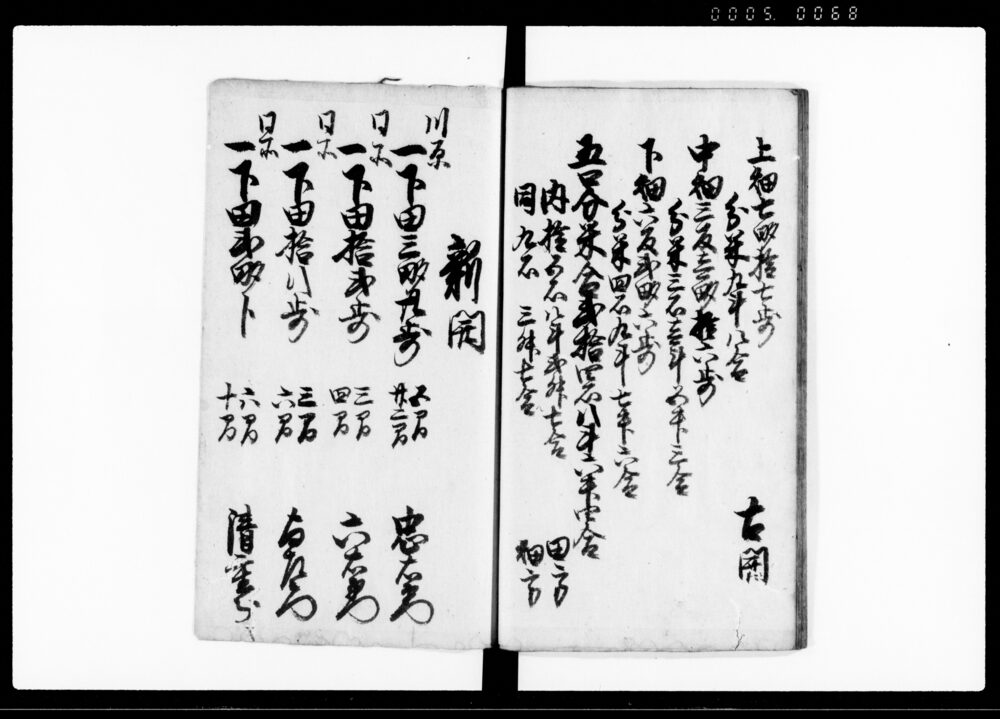 0005. 0068
上畑七畝拾七歩
分米九斗八合
古開
中畑三反壱畝拾六歩
分米三石壱斗五升三合
下畑六反弐畝六歩
分米四石九斗七升六合
五口分米合弐拾四石八斗六升四合
内拾五石八斗弐升七合 田方
同九石 三升七合 畑方
新開
川原
一下田三畝廿歩 五間 廿二間 忠右衛門
同所
一下田拾弐歩 三間 四間 六右衛門
同所
一下田拾八歩 三間 六間
同所
一下田弐畝卜 六間 十間 清